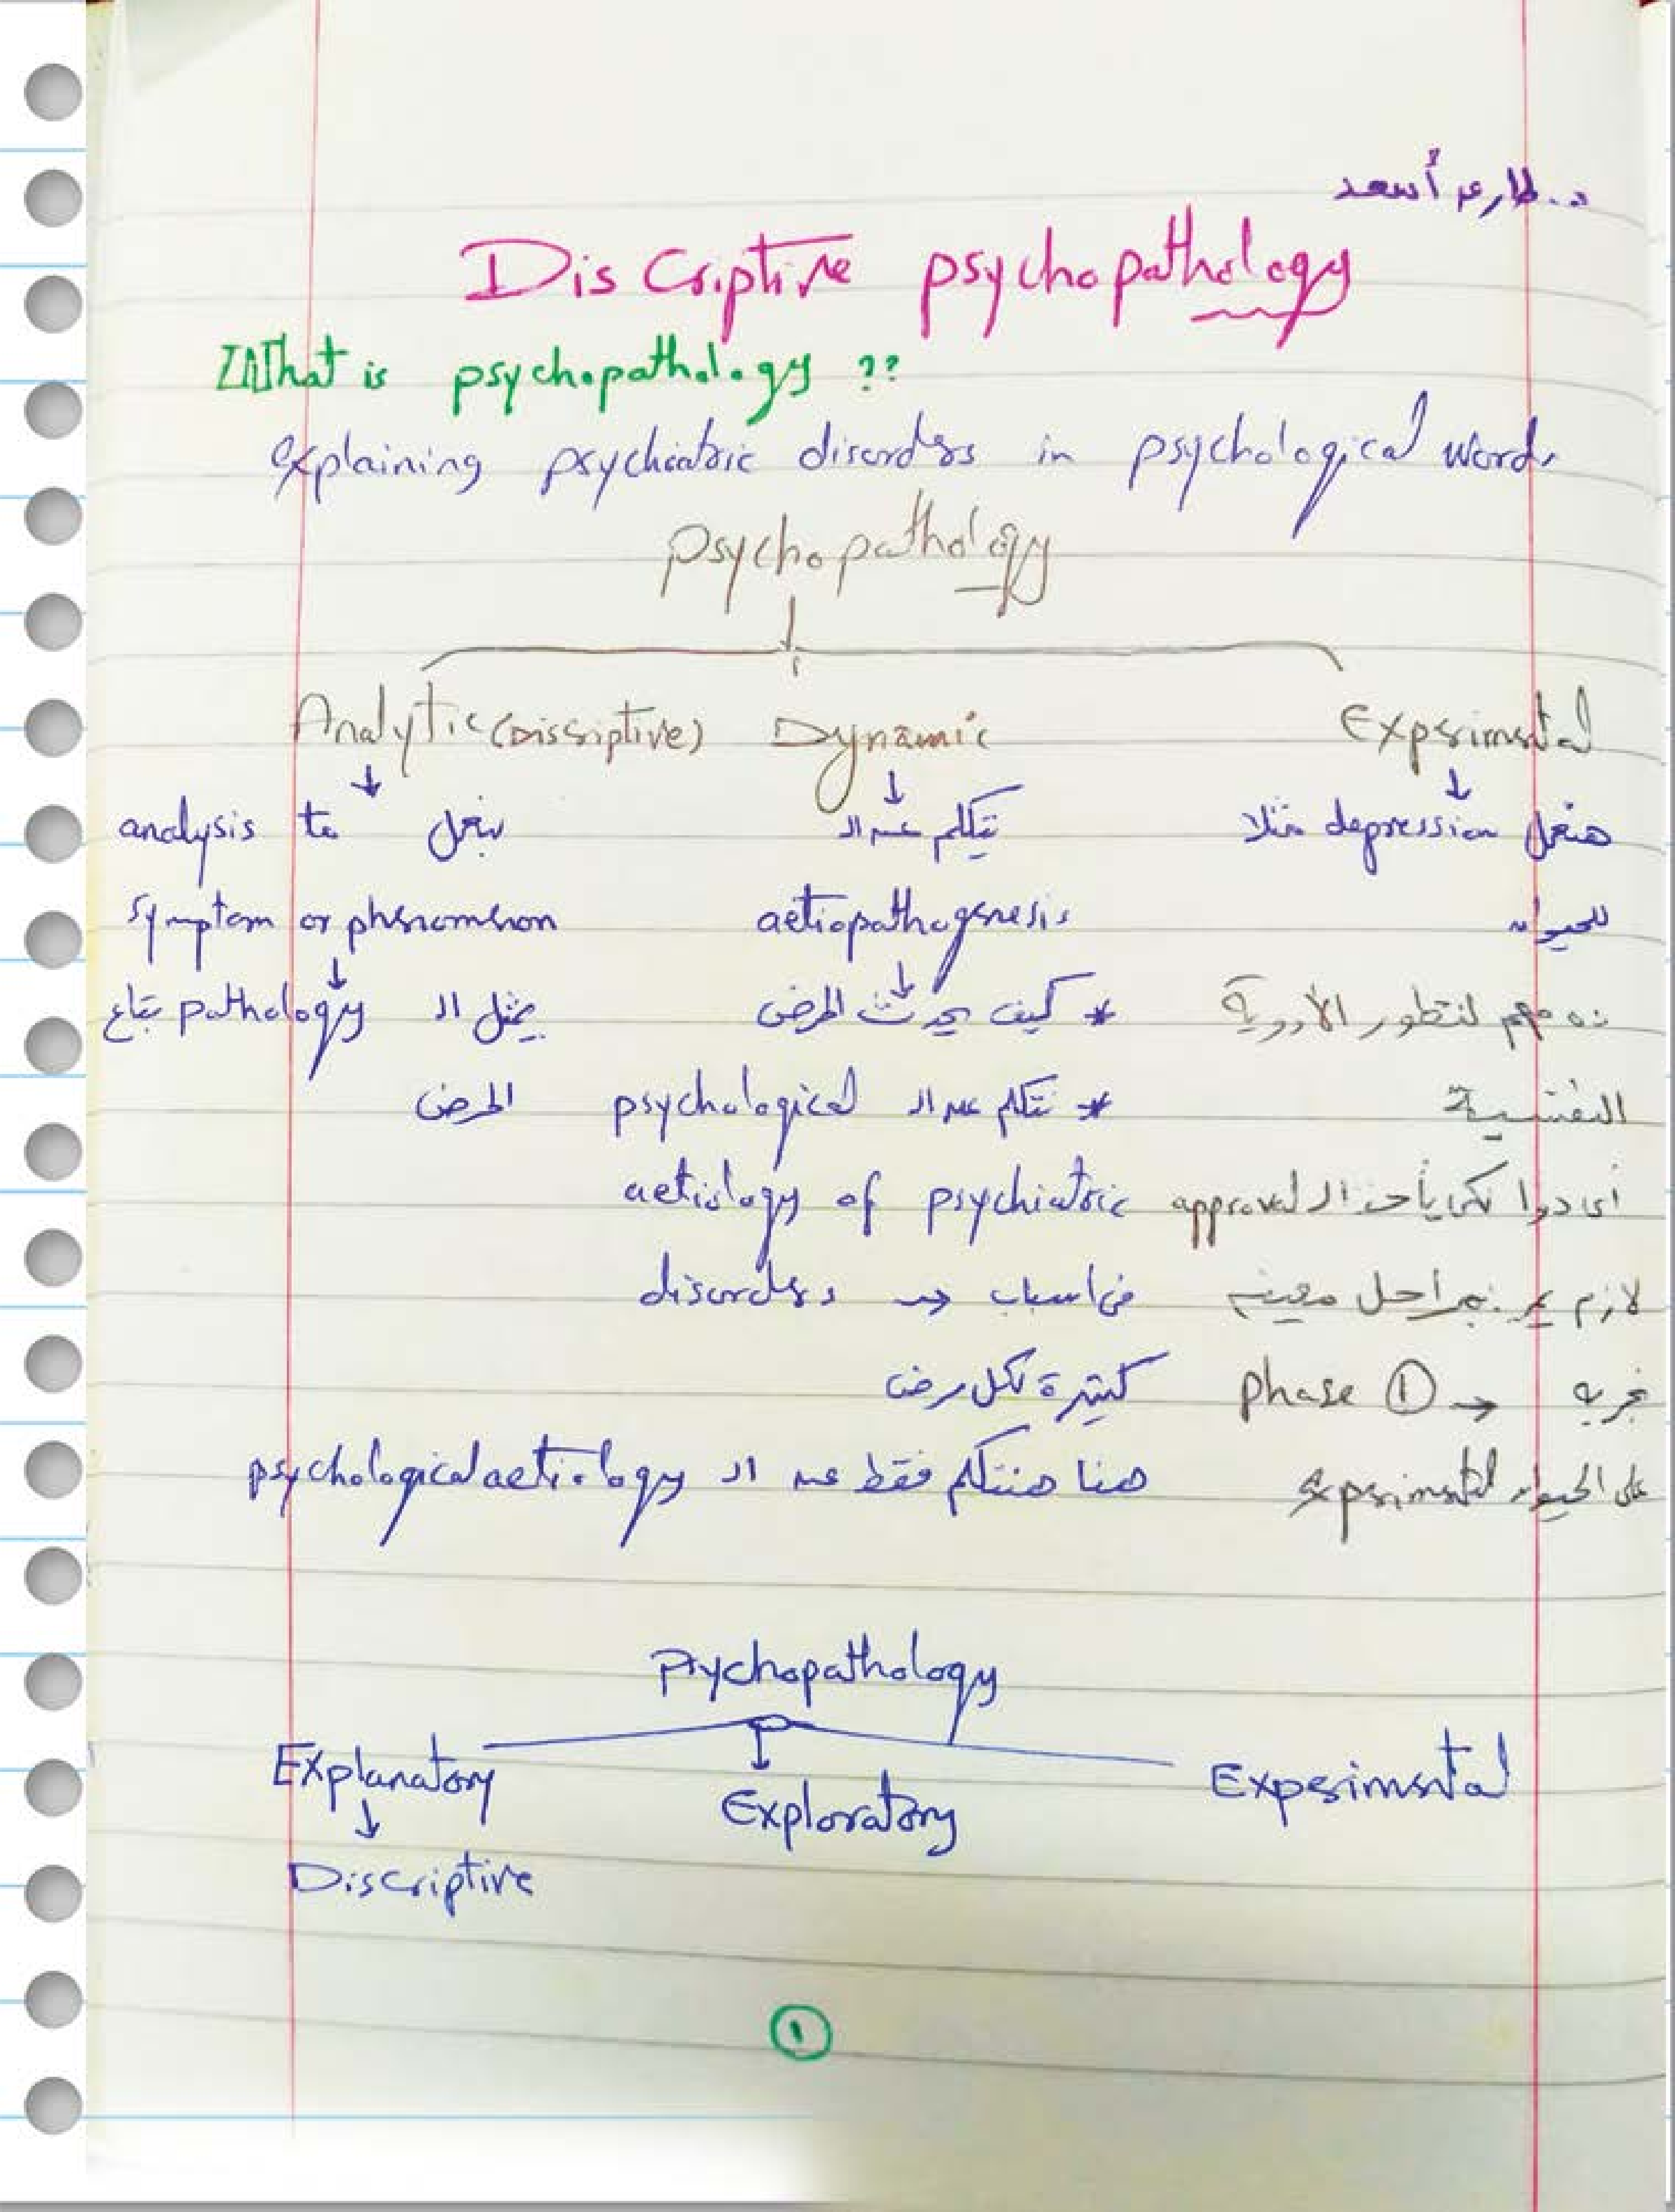 د. طارق أسعد
Discriptive psychopathology
What is psychopathology ??
explaining psychiatric disorders in psychological words
psychopathology
Analytic (Discriptive)
↓
بنعمل analysis to
symptom or phenomenon
↓
يمثل الـ pathology بتاع
المرض
Dynamic
↓
نتكلم عن الـ
aetiopathogenesis
↓
* كيف يحدث المرض
* نتكلم عن الـ psychological
aetiology of psychiatric
disorders → في اسباب
كتيرة لكل مرض
هنا هنتكلم فقط عن الـ psychological aetiology
Experimental
↓
هنعمل depression مثلا
للحيوان
ده مهم لتطور الأدوية
النفسية
أي دوا لكي يأخذ الـ approval
لازم يمر بمراحل معينه
phase ① → تجربه
على الحيوان experimental
Psychopathology
Explanatory
↓
Discriptive
Exploratory
Experimental
١